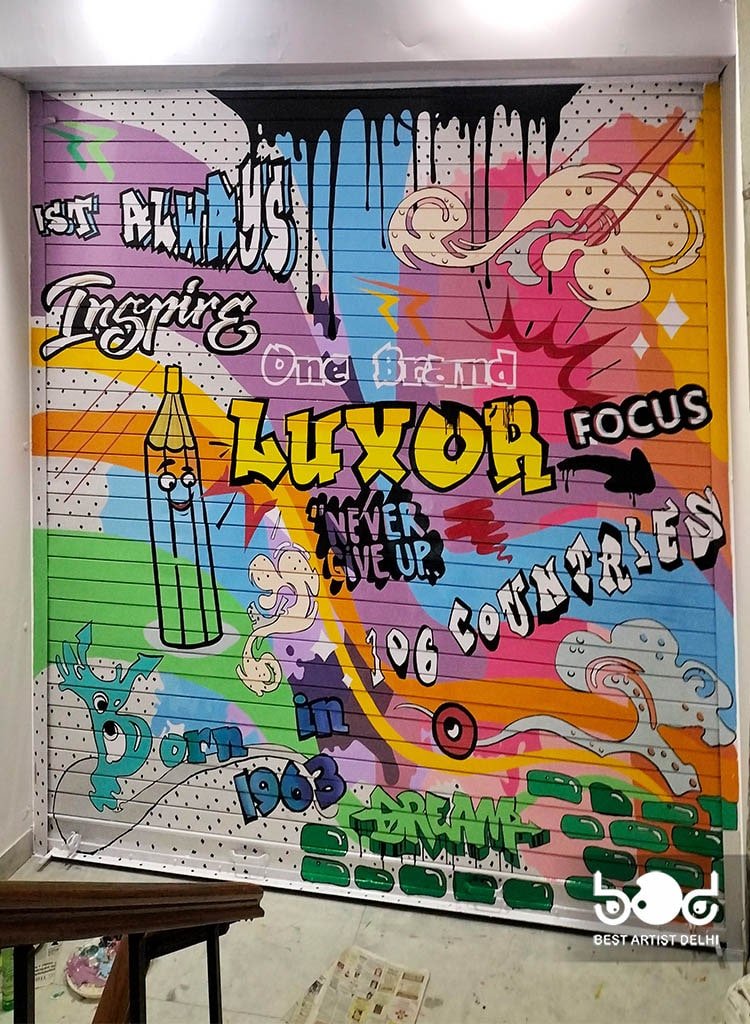 1ST ALWAYS
Inspire
One Brand
LUXOR
FOCUS
"NEVER
GIVE UP.
106 COUNTRIES
Born in
1963
DREAM
bod
BEST ARTIST DELHI